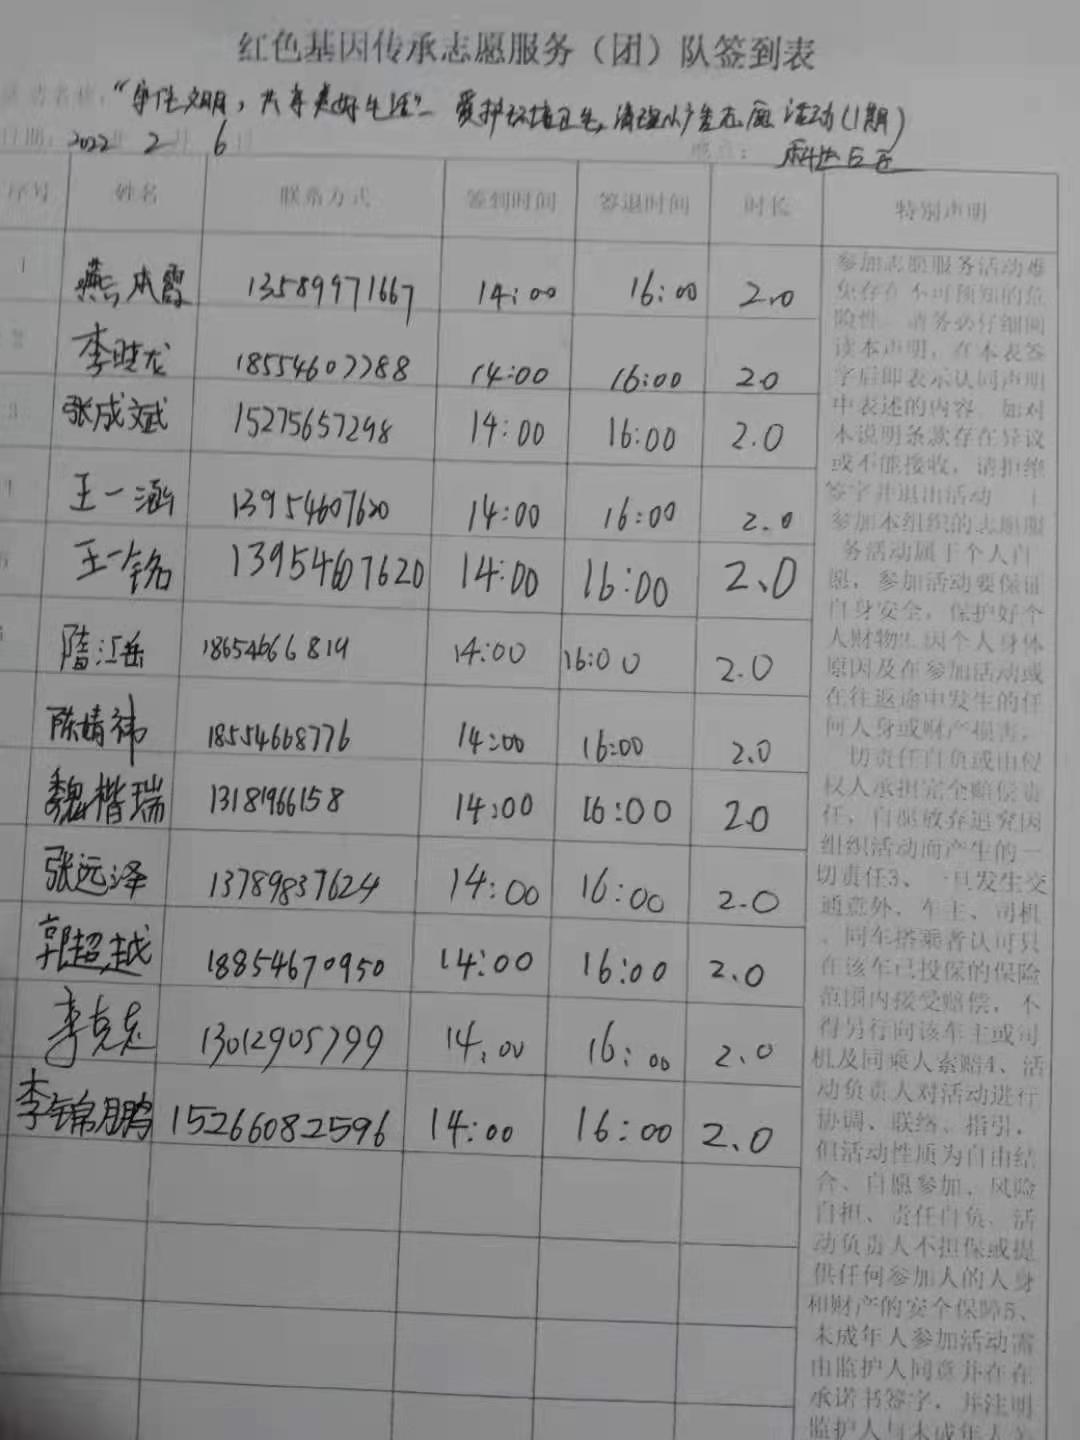 红色基因传承志愿服务（团）队签到表
活动名称：“争住文明，共享美好生活”— 爱护环境卫生，清理 活动(1期)
日期：2022年 2月 6日 地点：科达
序号 姓名 联系方式 签到时间 签退时间 时长 特别声明
1 燕成霞 13589971667 14:00 16:00 2.0
2 李晓龙 18554607788 14:00 16:00 2.0
3 张成斌 15275657298 14:00 16:00 2.0
4 王一涵 13954607620 14:00 16:00 2.0
5 王一铭 13954607620 14:00 16:00 2.0
6 隋江岳 18654666819 14:00 16:00 2.0
陈婧祎 18554668776 14:00 16:00 2.0
魏楷瑞 13181966158 14:00 16:00 2.0
张远泽 13789837624 14:00 16:00 2.0
郭超越 18854670950 14:00 16:00 2.0
李克志 13012905799 14:00 16:00 2.0
李锦鹏 15266082596 14:00 16:00 2.0
参加志愿服务活动难
免存在不可预知的危
险性，请务必仔细阅
读本声明，在本表签
字后即表示认同声明
中表述的内容，如对
本说明条款存在异议
或不能接收，请拒绝
签字并退出活动 1
参加本组织的志愿服
务活动属于个人自
愿，参加活动要保证
自身安全，保护好个
人财物2、因个人身体
原因及在参加活动或
在往返途中发生的任
何人身或财产损害，
一切责任自负或由侵
权人承担完全赔偿责
任，自愿放弃追究因
组织活动而产生的一
切责任3、一旦发生交
通意外，车主、司机
、同车搭乘者认可只
在该车已投保的保险
范围内接受赔偿，不
得另行向该车主或司
机及同乘人索赔4、活
动负责人对活动进行
协调、联络、指引，
但活动性质为自由结
合、自愿参加、风险
自担、责任自负、活
动负责人不担保或提
供任何参加人的人身
和财产的安全保障5、
未成年人参加活动需
由监护人同意并在在
承诺书签字，并注明
监护人与未成年人关